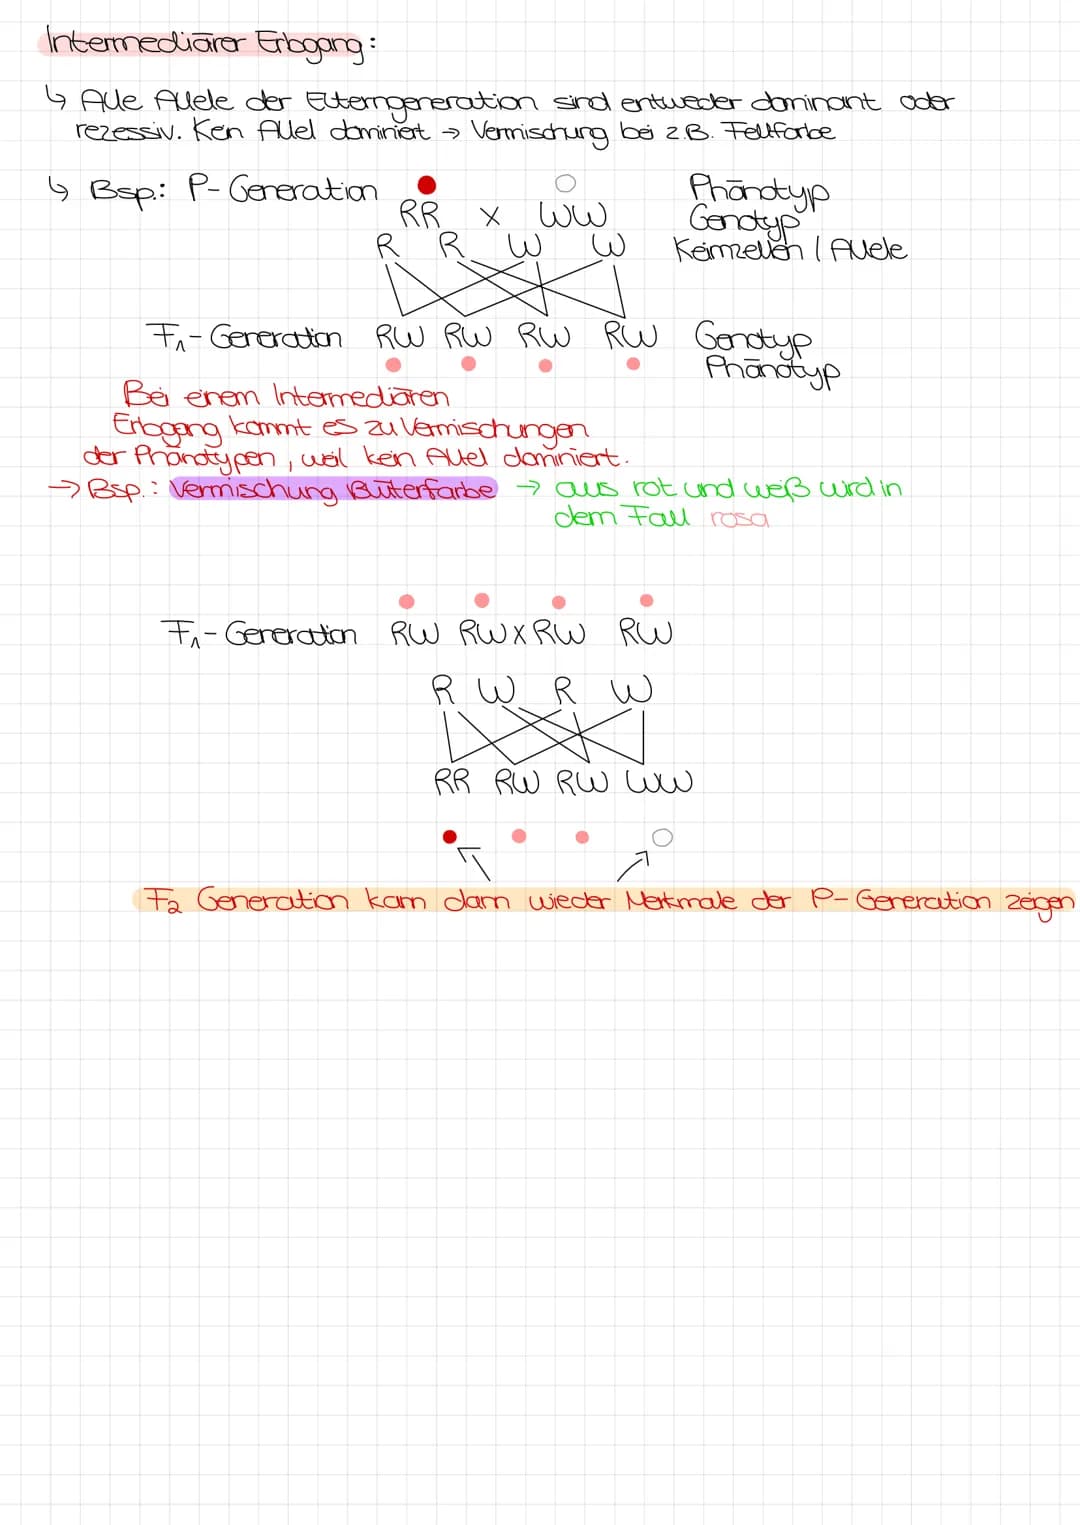 Intermediärer Erbgang:
↳ Alle Allele der Elterngeneration sind entweder dominant oder
rezessiv. Kein Allel dominiert → Vermischung bei z.B. Fellfarbe
↳ Bsp.: P-Generation Phänotyp
RR x WW Genotyp
R R W W Keimzellen / Allele
F₁-Generation RW RW RW RW Genotyp
Phänotyp
Bei einem Intermediären
Erbgang kommt es zu Vermischungen
der Phänotypen, weil kein Allel dominiert.
→ Bsp.: Vermischung Blütenfarbe → aus rot und weiß wird in
dem Fall rosa
F₁-Generation RW RW x RW RW
R W R W
RR RW RW WW
F₂ Generation kann dann wieder Merkmale der P-Generation zeigen